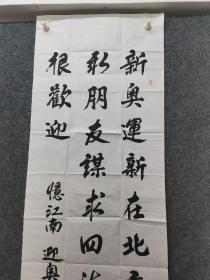 新奥運新在北
新朋友謀求四
很歡迎
憶江南 迎奥